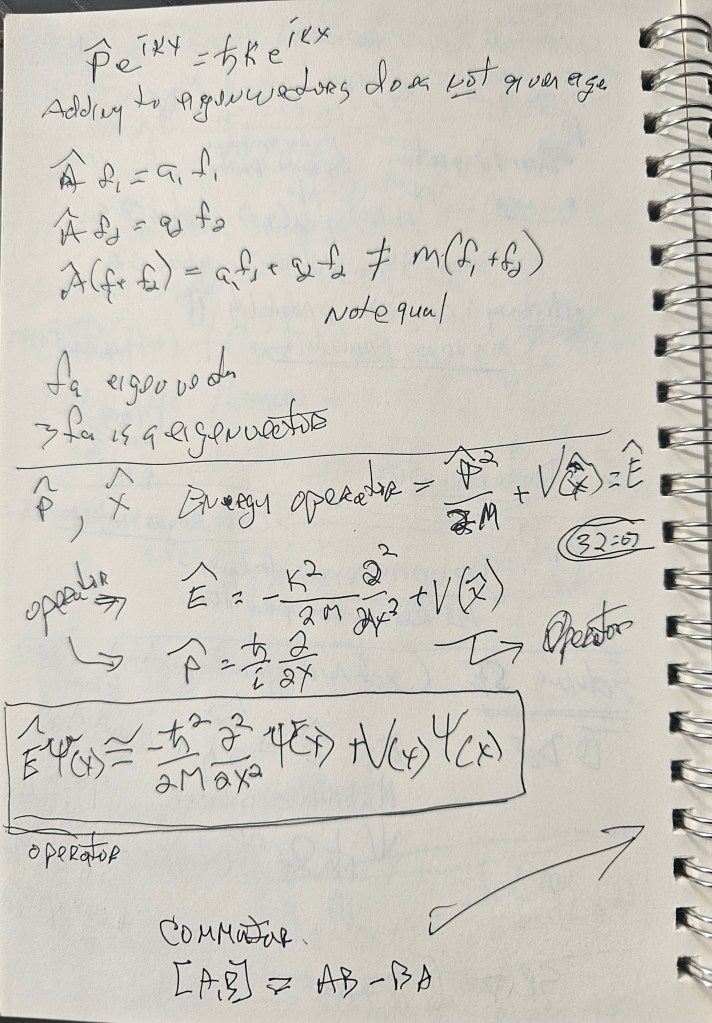 p̂ e^{ikx} = ħk e^{ikx}
Adding to eigenvectors does not
Â f₁ = a₁ f₁
Â f₂ = a₂ f₂
Â(f₁ + f₂) = a₁f₁ + a₂ f₂ ≠ m(f₁ + f₂)
Not equal
fa
3 fa is a eigenvector
p̂, x̂ Energy operator = p̂²/2M + V(x̂) = Ê
32:07
operator ⇒ Ê = -ħ²/2M ∂²/∂x² + V(x̂)
↳ p̂ = ħ/i ∂/∂x → Operator
Ê Ψ(x) ≅ -ħ²/2M ∂²/∂x² Ψ(x) + V(x) Ψ(x)
operator
[A,B] = AB - BA